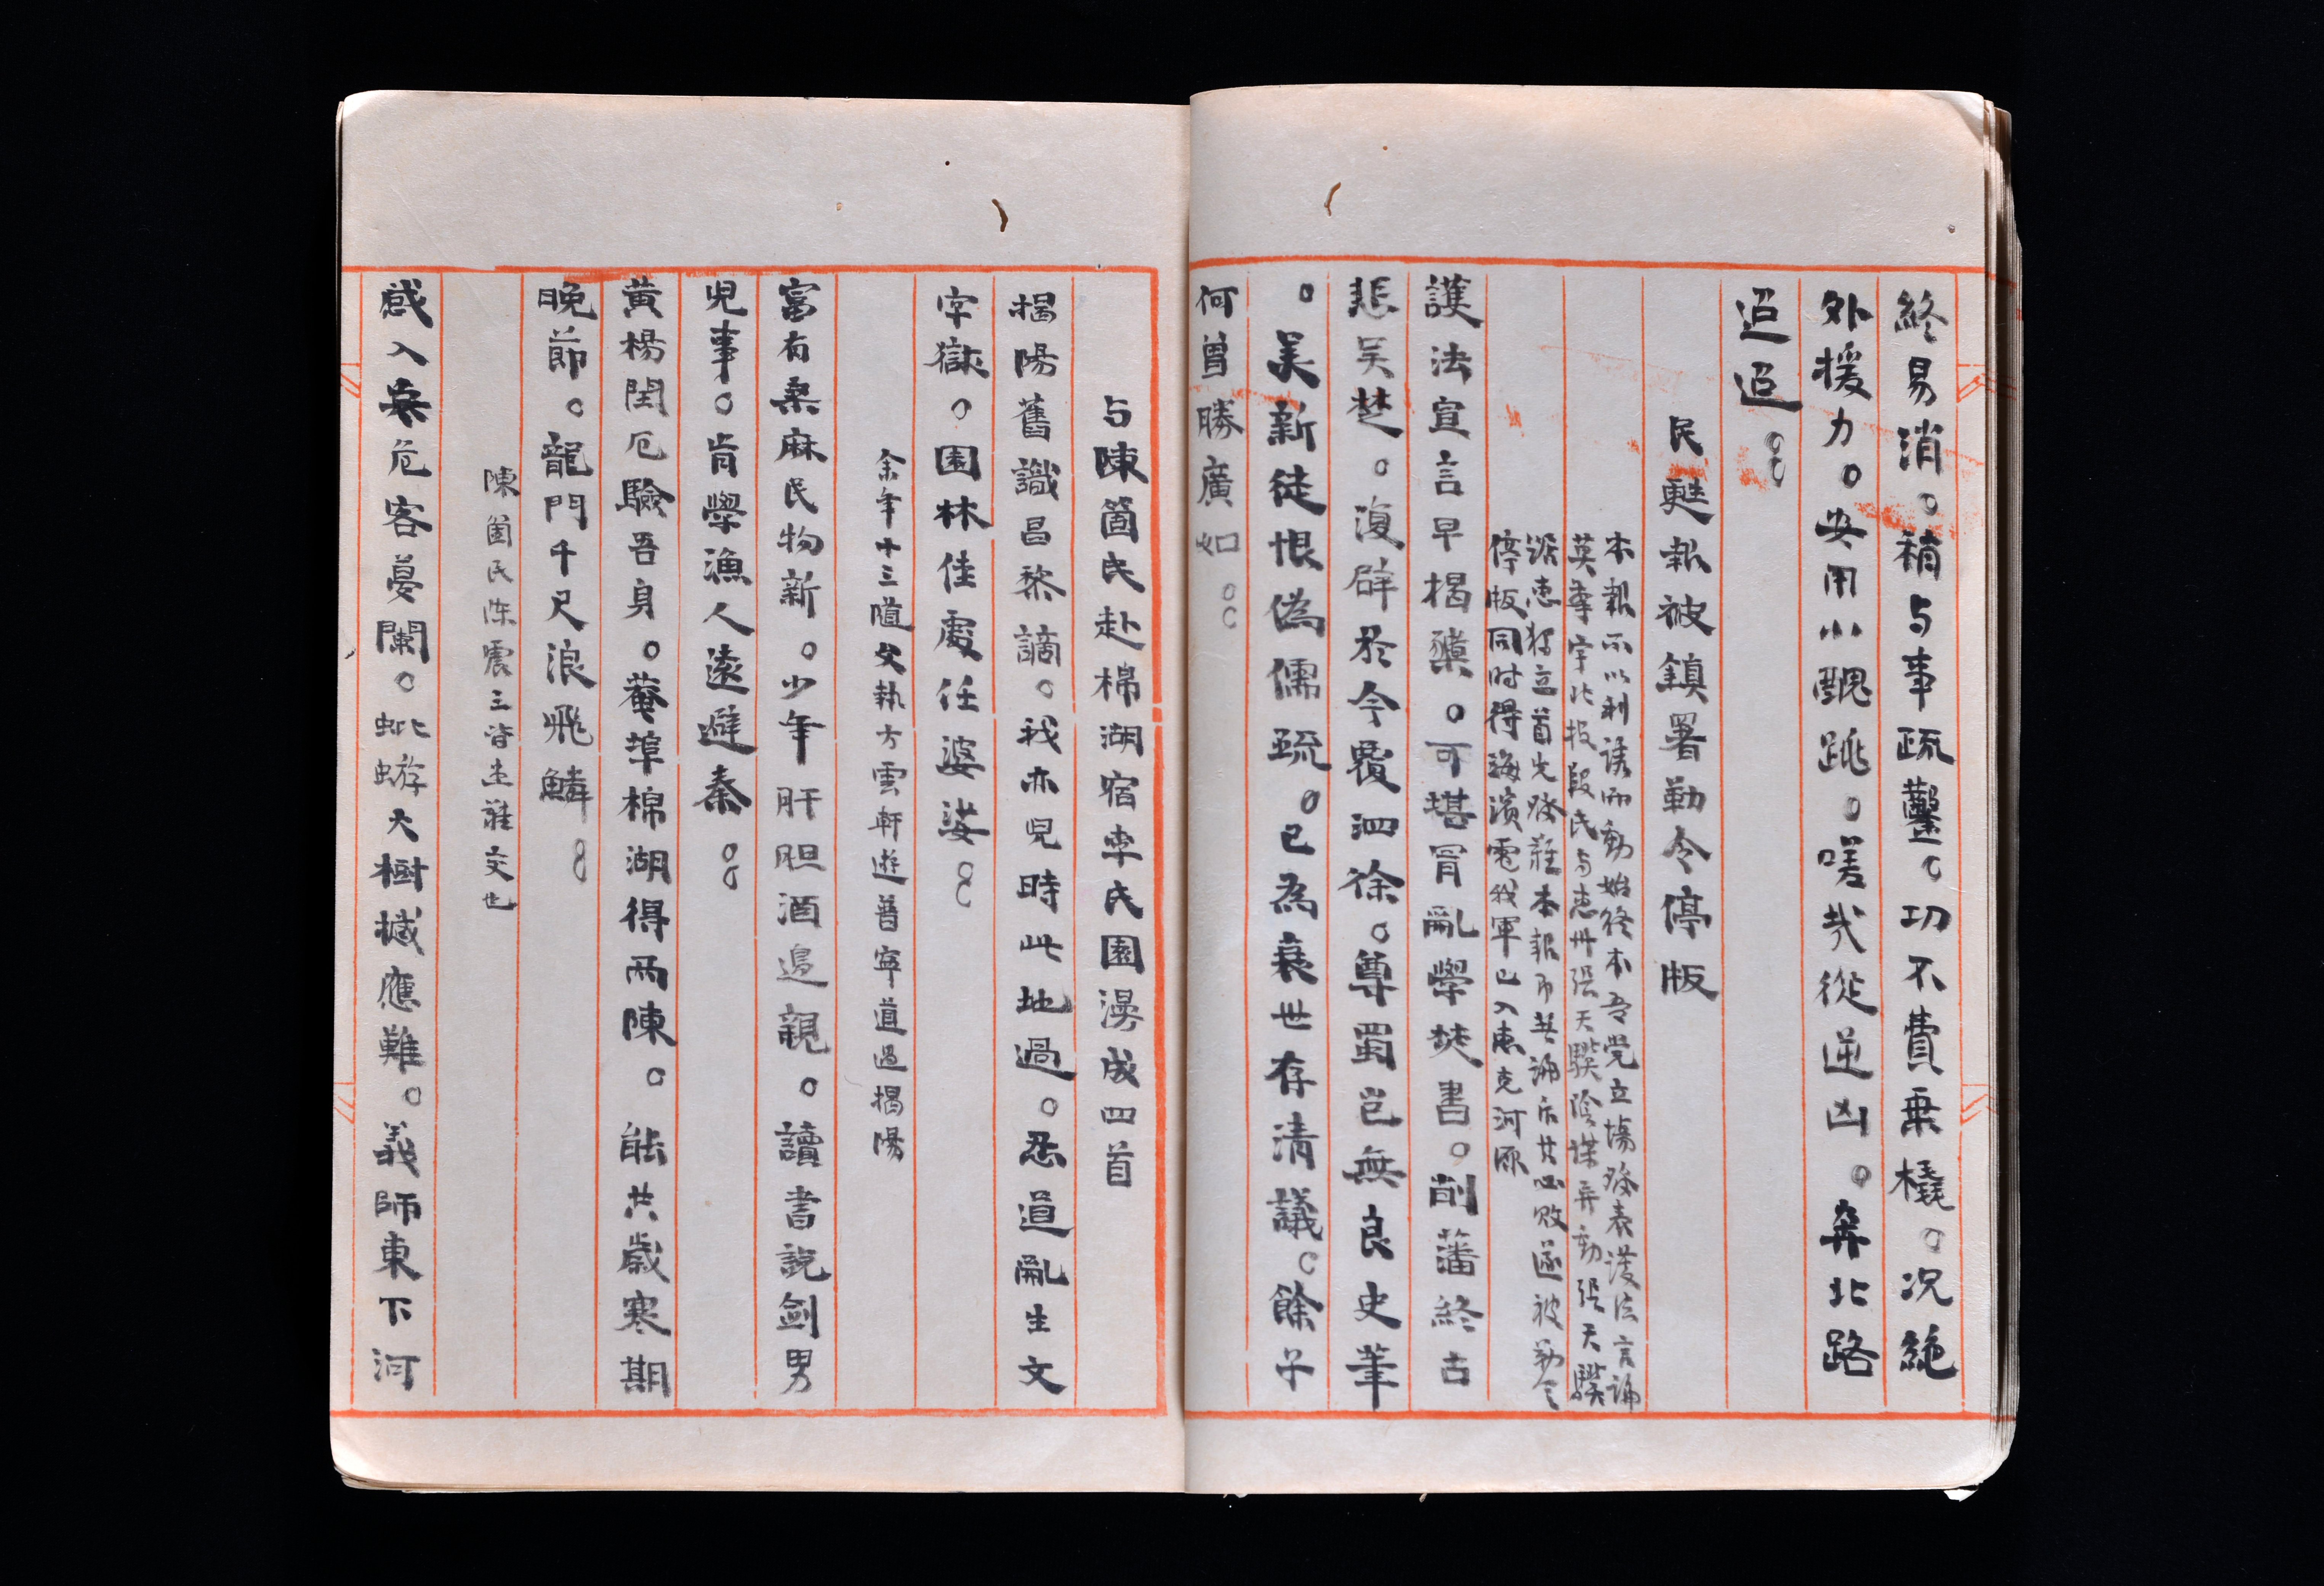 終易消。稍与事疏鑿。功不費乘橇。況絶
外援力。安用小醜跳。嗟哉從逆凶。奔北路
迢迢。
民甦報被鎮署勒令停版
本報不以利誘而動始終本吾党立場發表護法言論
莫幸宇北投段氏与惠州張天驥陰謀异動張天驥
据惠獨立首先發難本報市其論斥其必敗遂被勒令
停版同时得海濱電我軍已入惠克河源
護法宣言早揭櫫。可堪胥亂學焚書。削藩終古
悲吴楚。復辟於今覆泗徐。尊蜀豈無良史筆
。美新徒恨偽儒疏。已為衰世存清議。餘子
何曾勝廣如。
与陳箇民赴棉湖宿李氏園漫成四首
揭陽舊識昌黎謫。我亦兒時此地過。忍道亂生文
字獄。園林佳處任婆娑。
余年十三隨父執方雲軒遊普寧道過揭陽
富有桑麻民物新。少年肝胆酒邊親。讀書說劍男
兒事。肯學漁人遠避秦。
黄楊閏厄驗吾身。菴埠棉湖得兩陳。能共歲寒期
晚節。龍門千尺浪飛鱗。
陳箇民陈震三皆生難交也
慼入桑危客夢闌。蚍蜉大樹撼應難。義師東下河